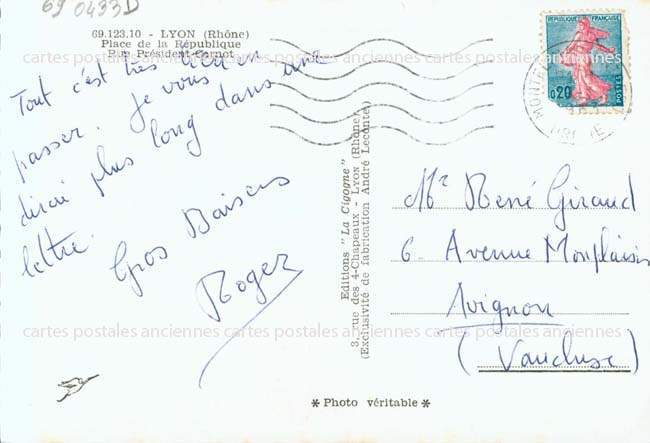 69 0433D
69.123.10 - LYON (Rhône)
Place de la République
Rue Président Carnot
Tout c'est très bien
passer. Je vous
dirai plus long dans une
lettre.
Gros Baisers
Roger
Editions "La Cigogne"
3, rue des 4-Chapeaux - LYON (Rhône)
(Exclusivité de fabrication André Leconte)
REPUBLIQUE FRANÇAISE
0,20
POSTES
Mr René Giraud
6 Avenue Monplaisir
Avignon
(Vaucluse)
* Photo véritable *
cartes postales anciennes cartes postales anciennes cartes postales anciennes
cartes postales anciennes cartes postales anciennes cartes postales anciennes